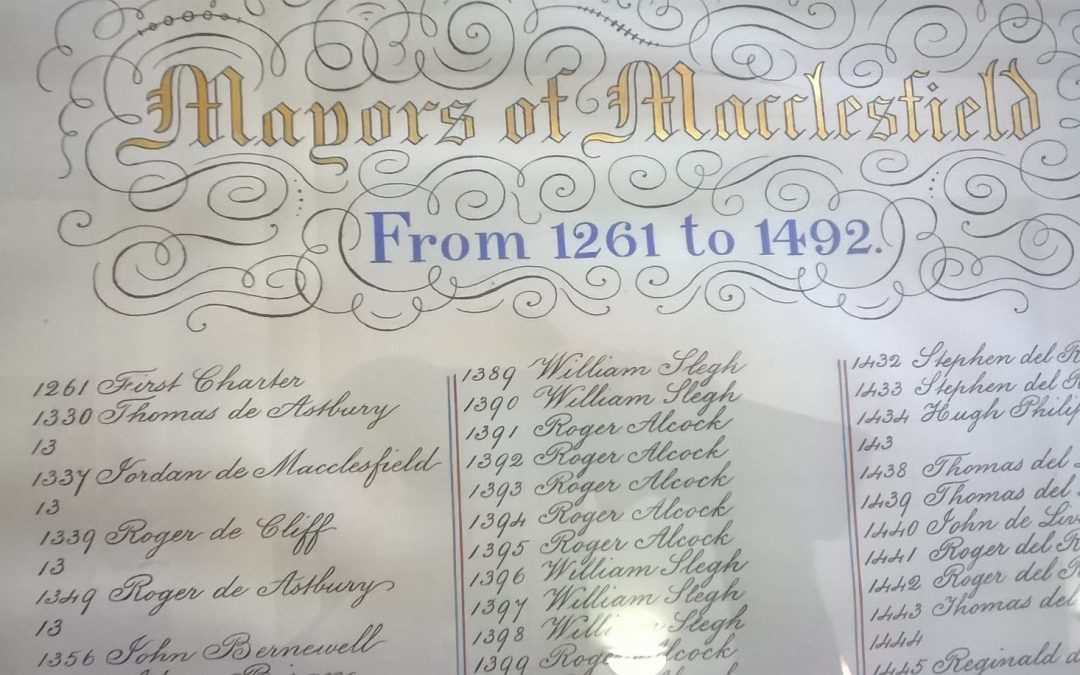 Mayors of Macclesfield
From 1261 to 1492.
1261 First Charter
1330 Thomas de Astbury
13
1337 Jordan de Macclesfield
13
1339 Roger de Cliff
13
1349 Roger de Astbury
13
1356 John Bernewell
1389 William Slegh
1390 William Slegh
1391 Roger Alcock
1392 Roger Alcock
1393 Roger Alcock
1394 Roger Alcock
1395 Roger Alcock
1396 William Slegh
1397 William Slegh
1398 Slegh
1399
1432 Stephen del
1433 Stephen del
1434 Hugh
143
1438 Thomas del
1439 Thomas del
1440 John de
1441 Roger del
1442 Roger del
1443 Thomas del
1444
1445 Reginald